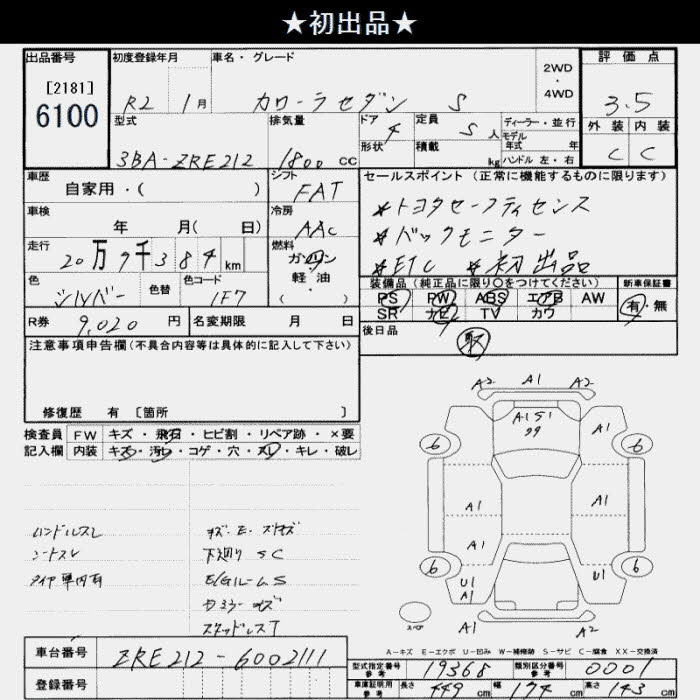 ★初出品★
出品番号 初度登録年月 車名・グレード 2WD・4WD 評価点
[2181] 6100
R2 1月 カローラセダン S 3.5
型式 排気量 ドア 4 定員 5人 ディーラー・並行
モデル年式 年
外装 内装
3BA-ZRE212 1800cc 形状 積載 kg ハンドル 左・右 C C
車歴 シフト セールスポイント (正常に機能するものに限ります)
自家用・( ) FAT
車検 冷房 *トヨタセーフティセンス
年 月( 日) AAC *バックモニター
走行 20万7千384km 燃料 ガソリン 軽・油 ・( ) *ETC *初出品
色 シルバー 色替 色コード 1F7
装備品 (純正品に限り○をつけてください) 新車保証書
PS PW ABS エアB AW 有・無
SR ナビ TV カワ
R券 9,020円 名変期限 月 日 後日品 取
注意事項申告欄 (不具合内容等は具体的に記入して下さい)
修復歴 有 〔箇所 〕
検査員 FW キズ・飛石・ヒビ割・リペア跡・×要
記入欄 内装 キズ・汚レ・コゲ・穴・スレ・キレ・破レ
ハンドルスレ
シートスレ
タイヤ車内有
キズ・E・スリキズ
下廻りSC
E/GルームS
スタッドレスT
A2 A1 A2
A1S1
A1
6 6
A1 A1
A1
6 6
U1 A1 U1
A1 A2
A-キズ E-エクボ U-凹み W-補修跡 S-サビ C-腐食 XX-交換済
車台番号 ZRE212-6002111
登録番号
型式指定番号 参考 19368 類別区分番号 参考 0001
車庫証明用 参考 長さ 449cm 幅 174cm 高さ 143cm